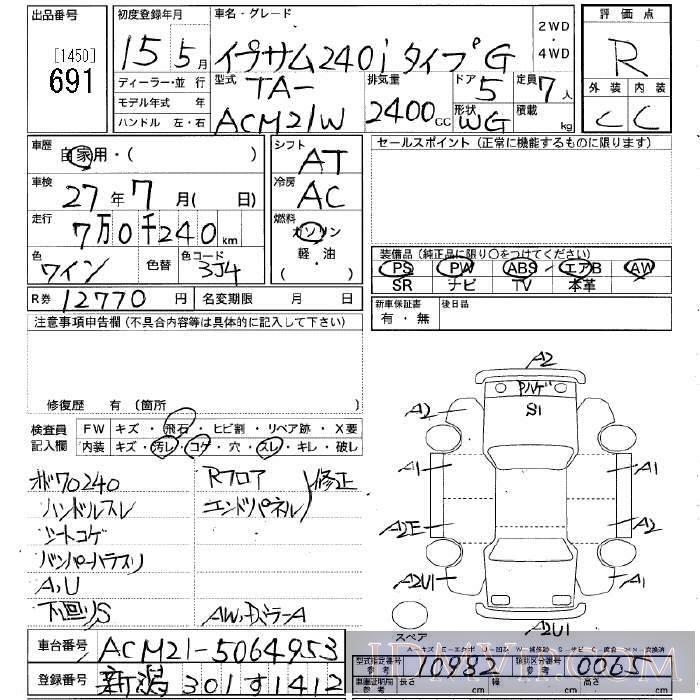 出品番号
[1450]
691
初度登録年月
15年5月
車名・グレード
イプサム240i タイプG
2WD
・
4WD
評価点
R
外装 内装
C C
ディーラー・並行
モデル年式 年
ハンドル 左・右
型式
TA-
ACM21W
排気量
2400cc
ドア
5
形状
WG
定員
7人
積載
kg
車歴
自家用・( )
シフト
AT
車検
27年7月( 日)
冷房
AC
走行
7万0千240km
燃料
ガソリン
・
軽・油
( )
色
ワイン
色替
色コード
3J4
R券 12770円
名変期限 月 日
セールスポイント (正常に機能するものに限ります)
装備品 (純正品に限り○をつけてください)
PS PW ABS エアB AW
SR ナビ TV 本革
新車保証書
有・無
後日品
注意事項申告欄 (不具合内容等は具体的に記入して下さい)
修復歴 有 (箇所
検査員
記入欄
FW キズ・飛石・ヒビ割・リペア跡・X要
内装 キズ・汚レ・コゲ・穴・スレ・キレ・破レ
ﾒｰﾀ70240
ハンドルスレ
シートコゲ
バンパーハラスリ
A,U
下回りS
Rフロア
エンドパネル
修正
AW,ミラーA
A2
ﾜﾚｹﾞ
S1
A2
A1
A1
A2E
A2
A2U1
A1
A2U1
スペア
車台番号 ACM21-5064953
登録番号 新潟301す1412
型式指定番号
参考
10982
類別区分番号
参考
0065
車庫証明用
参考
長さ cm
幅 cm
高さ cm
JDMVIP.COM